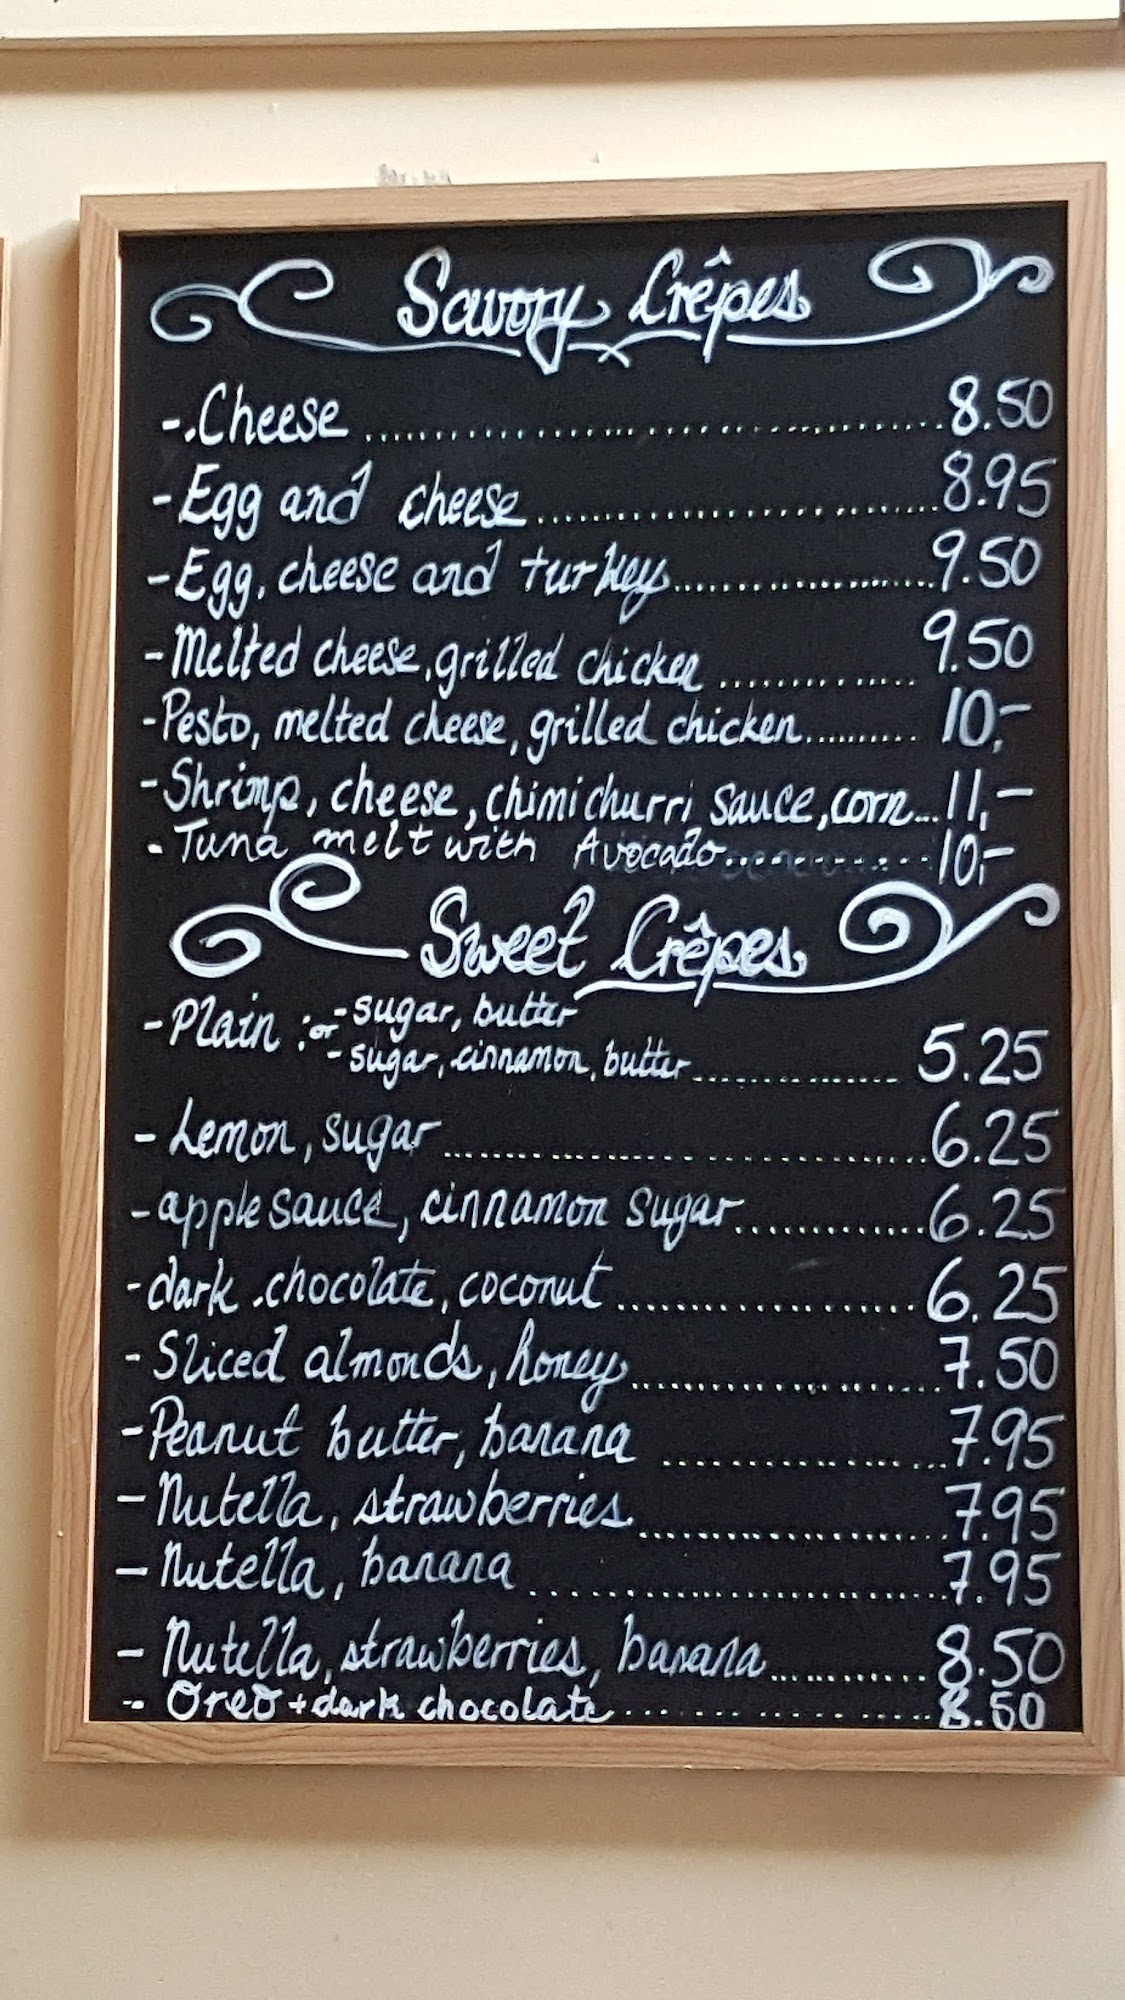 Savory Crêpes
-.Cheese ........................ 8.50
- Egg and cheese ........................ 8.95
- Egg, cheese and turkey ........................ 9.50
- Melted cheese, grilled chicken ............. 9.50
- Pesto, melted cheese, grilled chicken .......... 10,-
- Shrimp, cheese, chimichurri sauce, corn... 11,-
- Tuna melt with Avocado ............. 10,-
Sweet Crêpes
- Plain : or - sugar, butter
- sugar, cinnamon, butter ............. 5.25
- Lemon, sugar ........................ 6.25
- apple sauce, cinnamon sugar ............. 6.25
- dark .chocolate, coconut .................. 6.25
- Sliced almonds, honey .................. 7.50
- Peanut butter, banana .................. 7.95
- Nutella, strawberries. .................. 7.95
- Nutella, banana ........................ 7.95
- Nutella, strawberries, banana ............ 8.50
-- Oreo + dark chocolate ............... 8.50